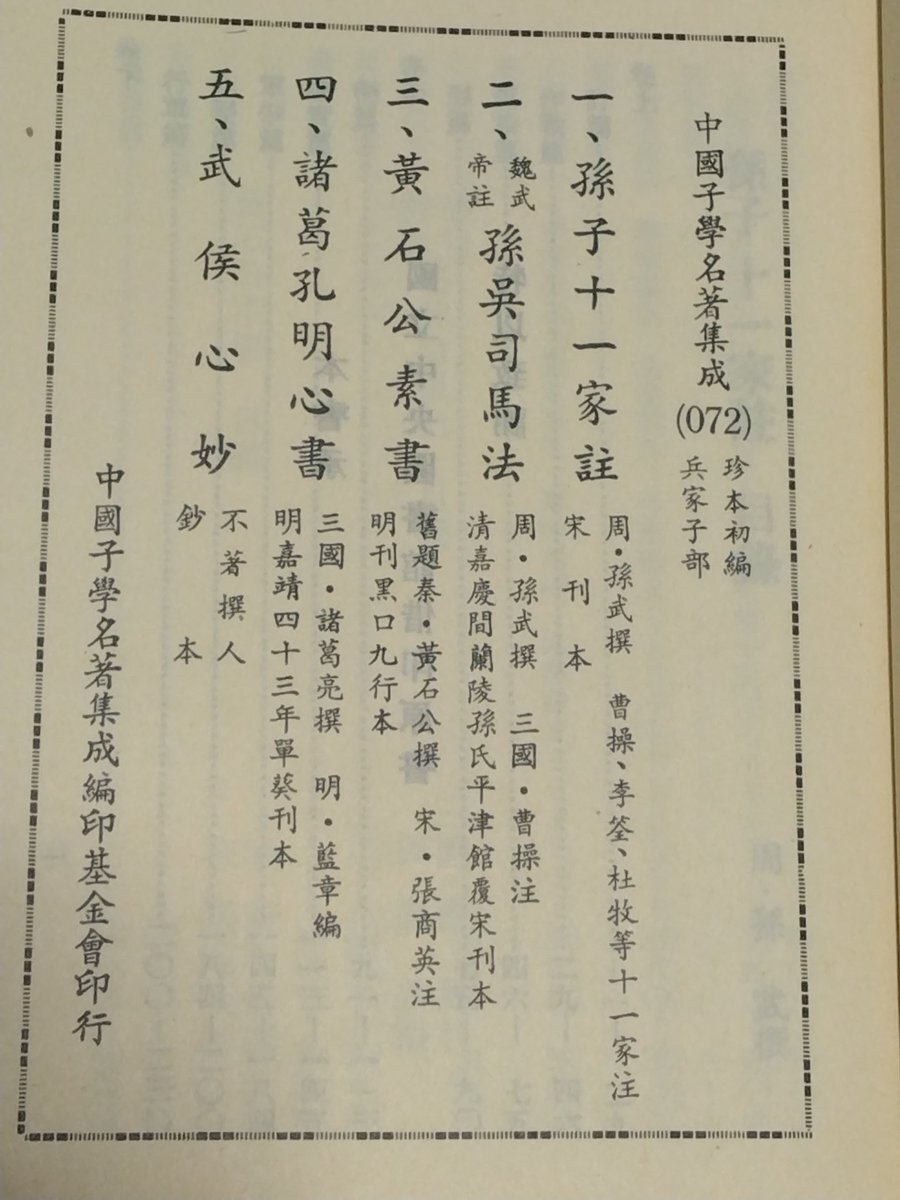 中國子學名著集成(072)
珍本初編
兵家子部
一、孫子十一家註
周・孫武撰 曹操、李筌、杜牧等十一家注
宋刊本
二、魏武帝註孫吳司馬法
周・孫武撰 三國・曹操注
清嘉慶間蘭陵孫氏平津館覆宋刊本
三、黃石公素書
舊題秦・黃石公撰 宋・張商英注
明刊黑口九行本
四、諸葛孔明心書
三國・諸葛亮撰 明・藍章編
明嘉靖四十三年單葵刊本
五、武侯心妙
不著撰人
鈔本
中國子學名著集成編印基金會印行